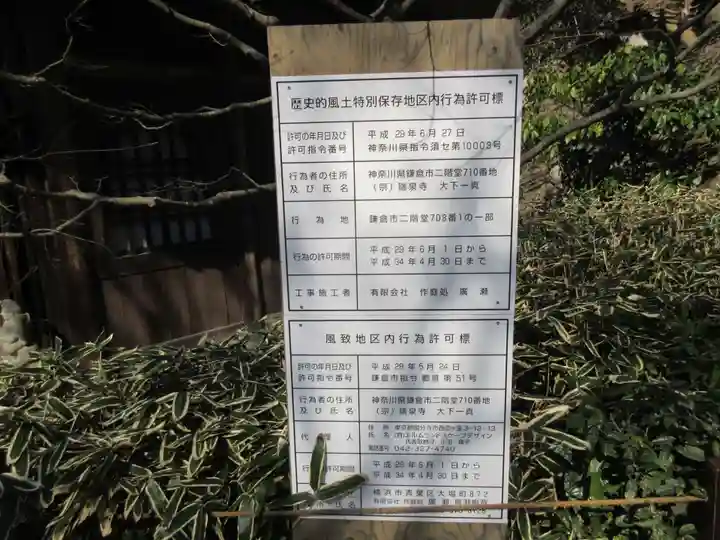 歴史的風土特別保存地区内行為許可標
許可の年月日及び
許可指令番号
平成 29年 6月 27日
神奈川県指令須セ第10003号
行為者の住所
及び氏名
神奈川県鎌倉市二階堂710番地
(宗) 瑞泉寺 大下一真
行為地
鎌倉市二階堂703番1の一部
行為の許可期間
平成 29年 6月 1日から
平成 34年 4月 30日まで
工事施工者
有限会社 作庭処 廣瀬
風致地区内行為許可標
許可の年月日及び
許可指令番号
平成 29年 5月 24日
鎌倉市指令 第 51号
行為者の住所
及び氏名
神奈川県鎌倉市二階堂710番地
(宗) 瑞泉寺 大下一真
代 人
住所
氏名 ランドスケープデザイン
電話番号 042-327-4740
許可期間
平成 29年 6月 1日から
平成 34年 4月 30日まで
横浜市青葉区大場町872
有限会社 作庭処 廣瀬
氏名